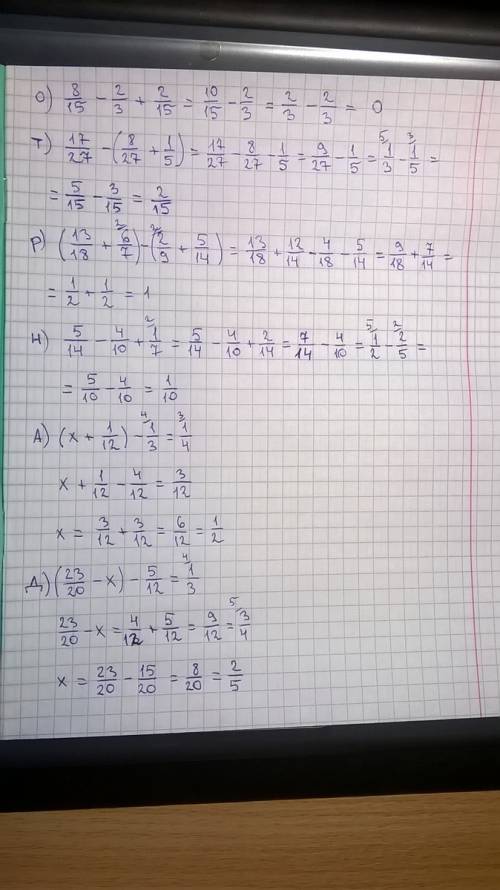 О) 8/15 - 2/3 + 2/15 = 10/15 - 2/3 = 2/3 - 2/3 = 0
Т) 17/27 - (8/27 + 1/5) = 17/27 - 8/27 - 1/5 = 9/27 - 1/5 = ⁵⁾1/3 - ³⁾1/5 =
= 5/15 - 3/15 = 2/15
Р) (13/18 + ²⁾6/7) - (²⁾2/9 + 5/14) = 13/18 + 12/14 - 4/18 - 5/14 = 9/18 + 7/14 =
= 1/2 + 1/2 = 1
Н) 5/14 - 4/10 + ²⁾1/7 = 5/14 - 4/10 + 2/14 = 7/14 - 4/10 = ⁵⁾1/2 - ²⁾2/5 =
= 5/10 - 4/10 = 1/10
А) (x + 1/12) - ⁴⁾1/3 = ³⁾1/4
x + 1/12 - 4/12 = 3/12
x = 3/12 + 3/12 = 6/12 = 1/2
Д) (23/20 - x) - 5/12 = ⁴⁾1/3
23/20 - x = 4/12 + 5/12 = 9/12 = ⁵⁾3/4
x = 23/20 - 15/20 = 8/20 = 2/5